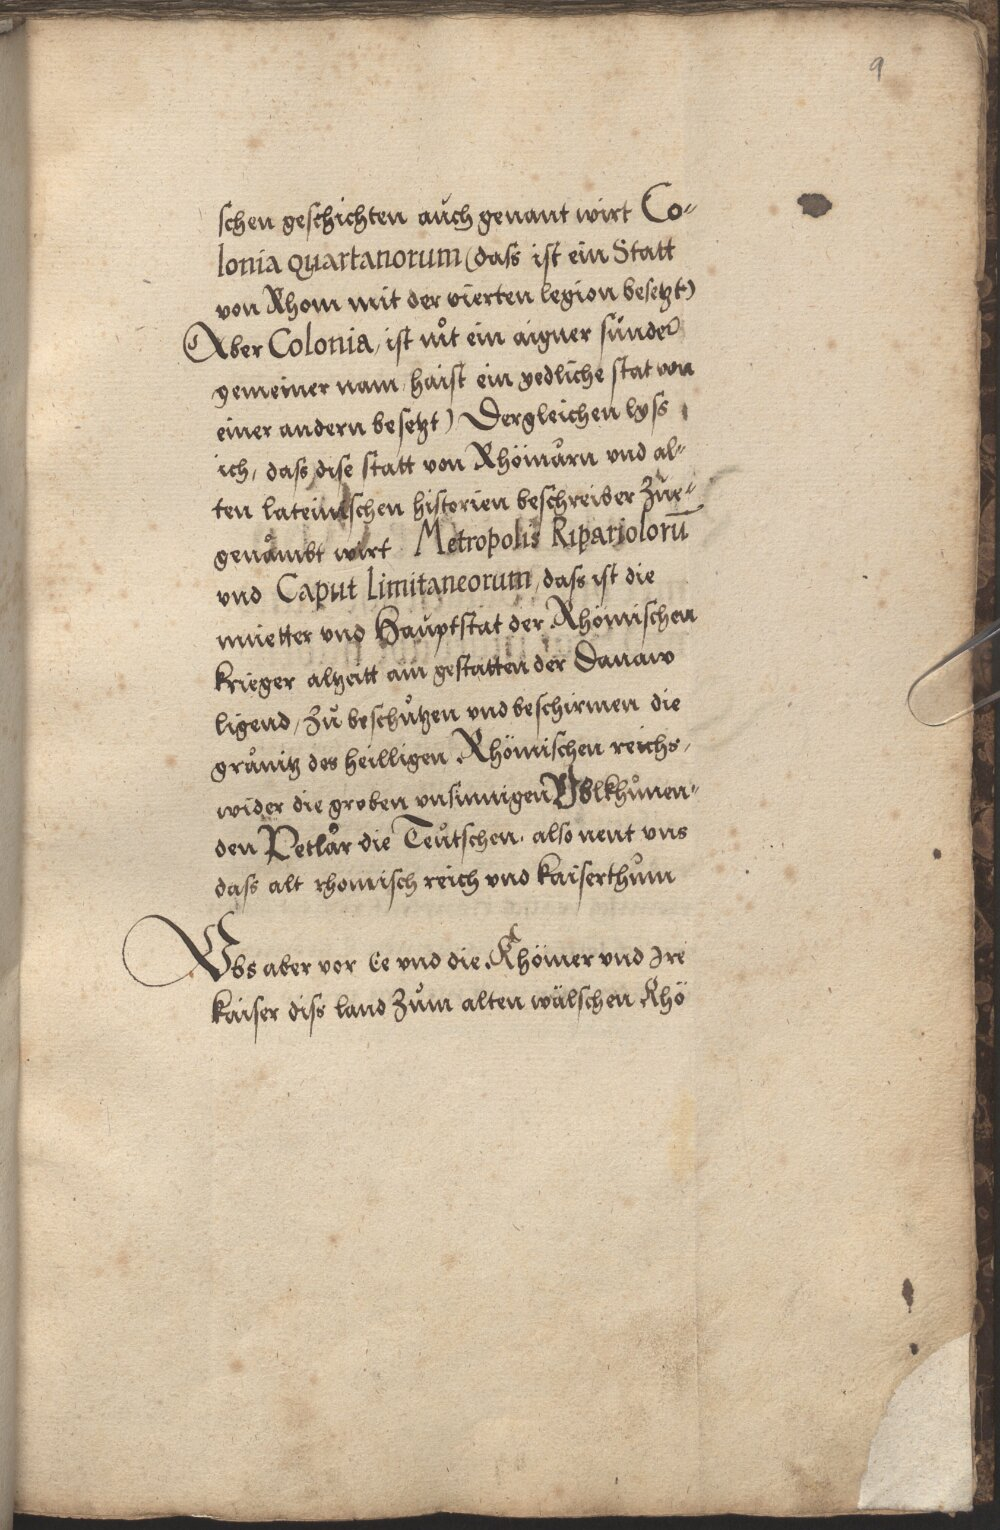 9
schen geschichten auch genant wirt Co-
lonia quartanorum (dass ist ein Statt
von Rhom mit der vierten legion besetzt)
Aber Colonia, ist nit ein aigner sunder
gemeiner nam, haist ein yedliche stat von
einer andern besetzt) Dergleichen lyss
ich, dass dise statt von Rhömårn und al-
ten lateinischen historien beschreiber
genåmbt wirt Metropolis Ripariolorū
vnd Caput limitaneorum, dass ist die
muetter vnd Hauptstat der Rhömischen
krieger altzeitt am gestatten der Danaw
ligend, Zů beschůtzen vnd beschirmen die
grånitz des heilligen Rhömischen reichs,
wider die groben vnsinnigen
den Petlår die Teůtschen. also nent vns
dass alt rhomisch reich vnd kaiserthům
Obs aber vor Ee vnd die Rhömer vnd Ire
kaiser diss land Zům alten wälschen Rhö